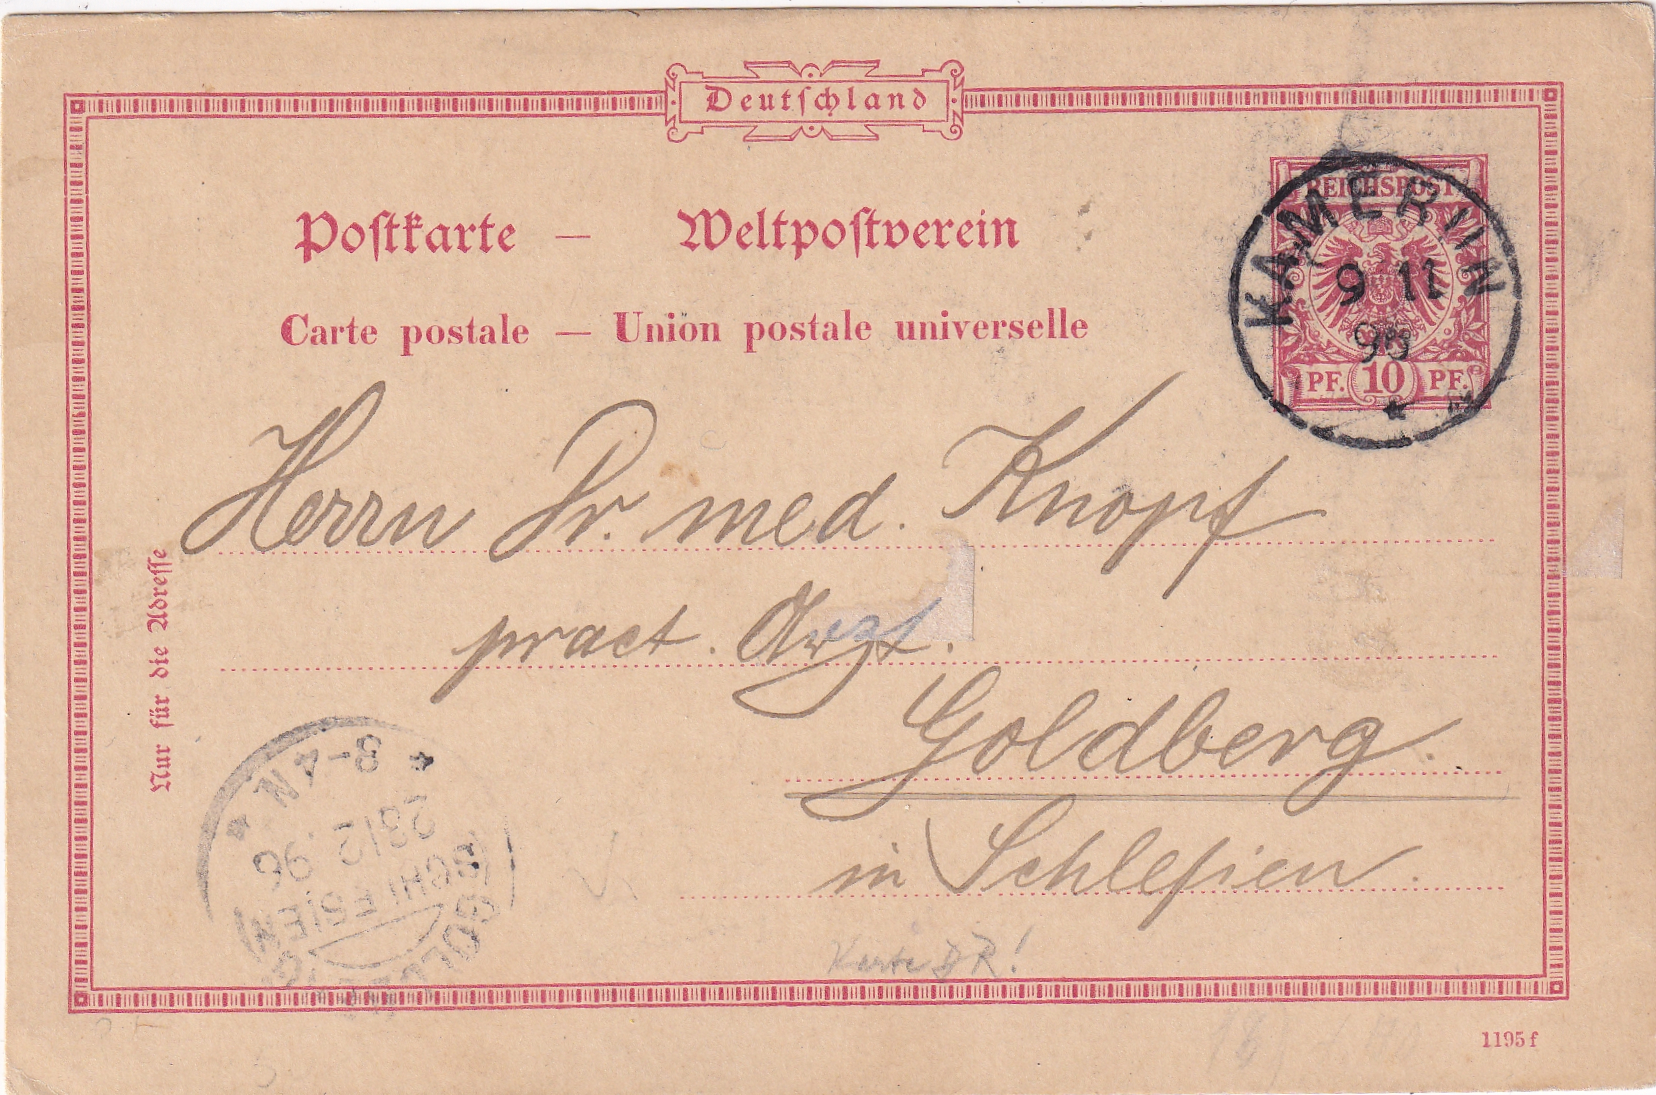 Deutschland
Postkarte — Weltpostverein
Carte postale — Union postale universelle
REICHSPOST
PF. 10 PF.
KAMERUN
9 11
96
Herrn Dr. med. Knopf
pract. Arzt.
Goldberg.
in Schlesien.
Nur für die Adresse
GOLDBERG
(SCHLESIEN)
23 12 96
3-4N
Karte DR!
1195 f